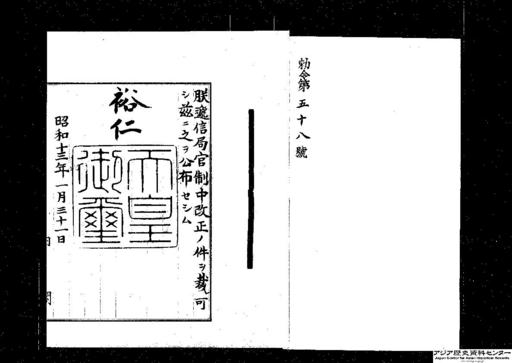 勅令第五十八號
朕遞信局官制中改正ノ件ヲ裁可
シ茲ニ之ヲ公布セシム
裕仁
天皇
御璽
昭和十三年一月三十一日
アジア歴史資料センター
Japan Center for Asian Historical Records